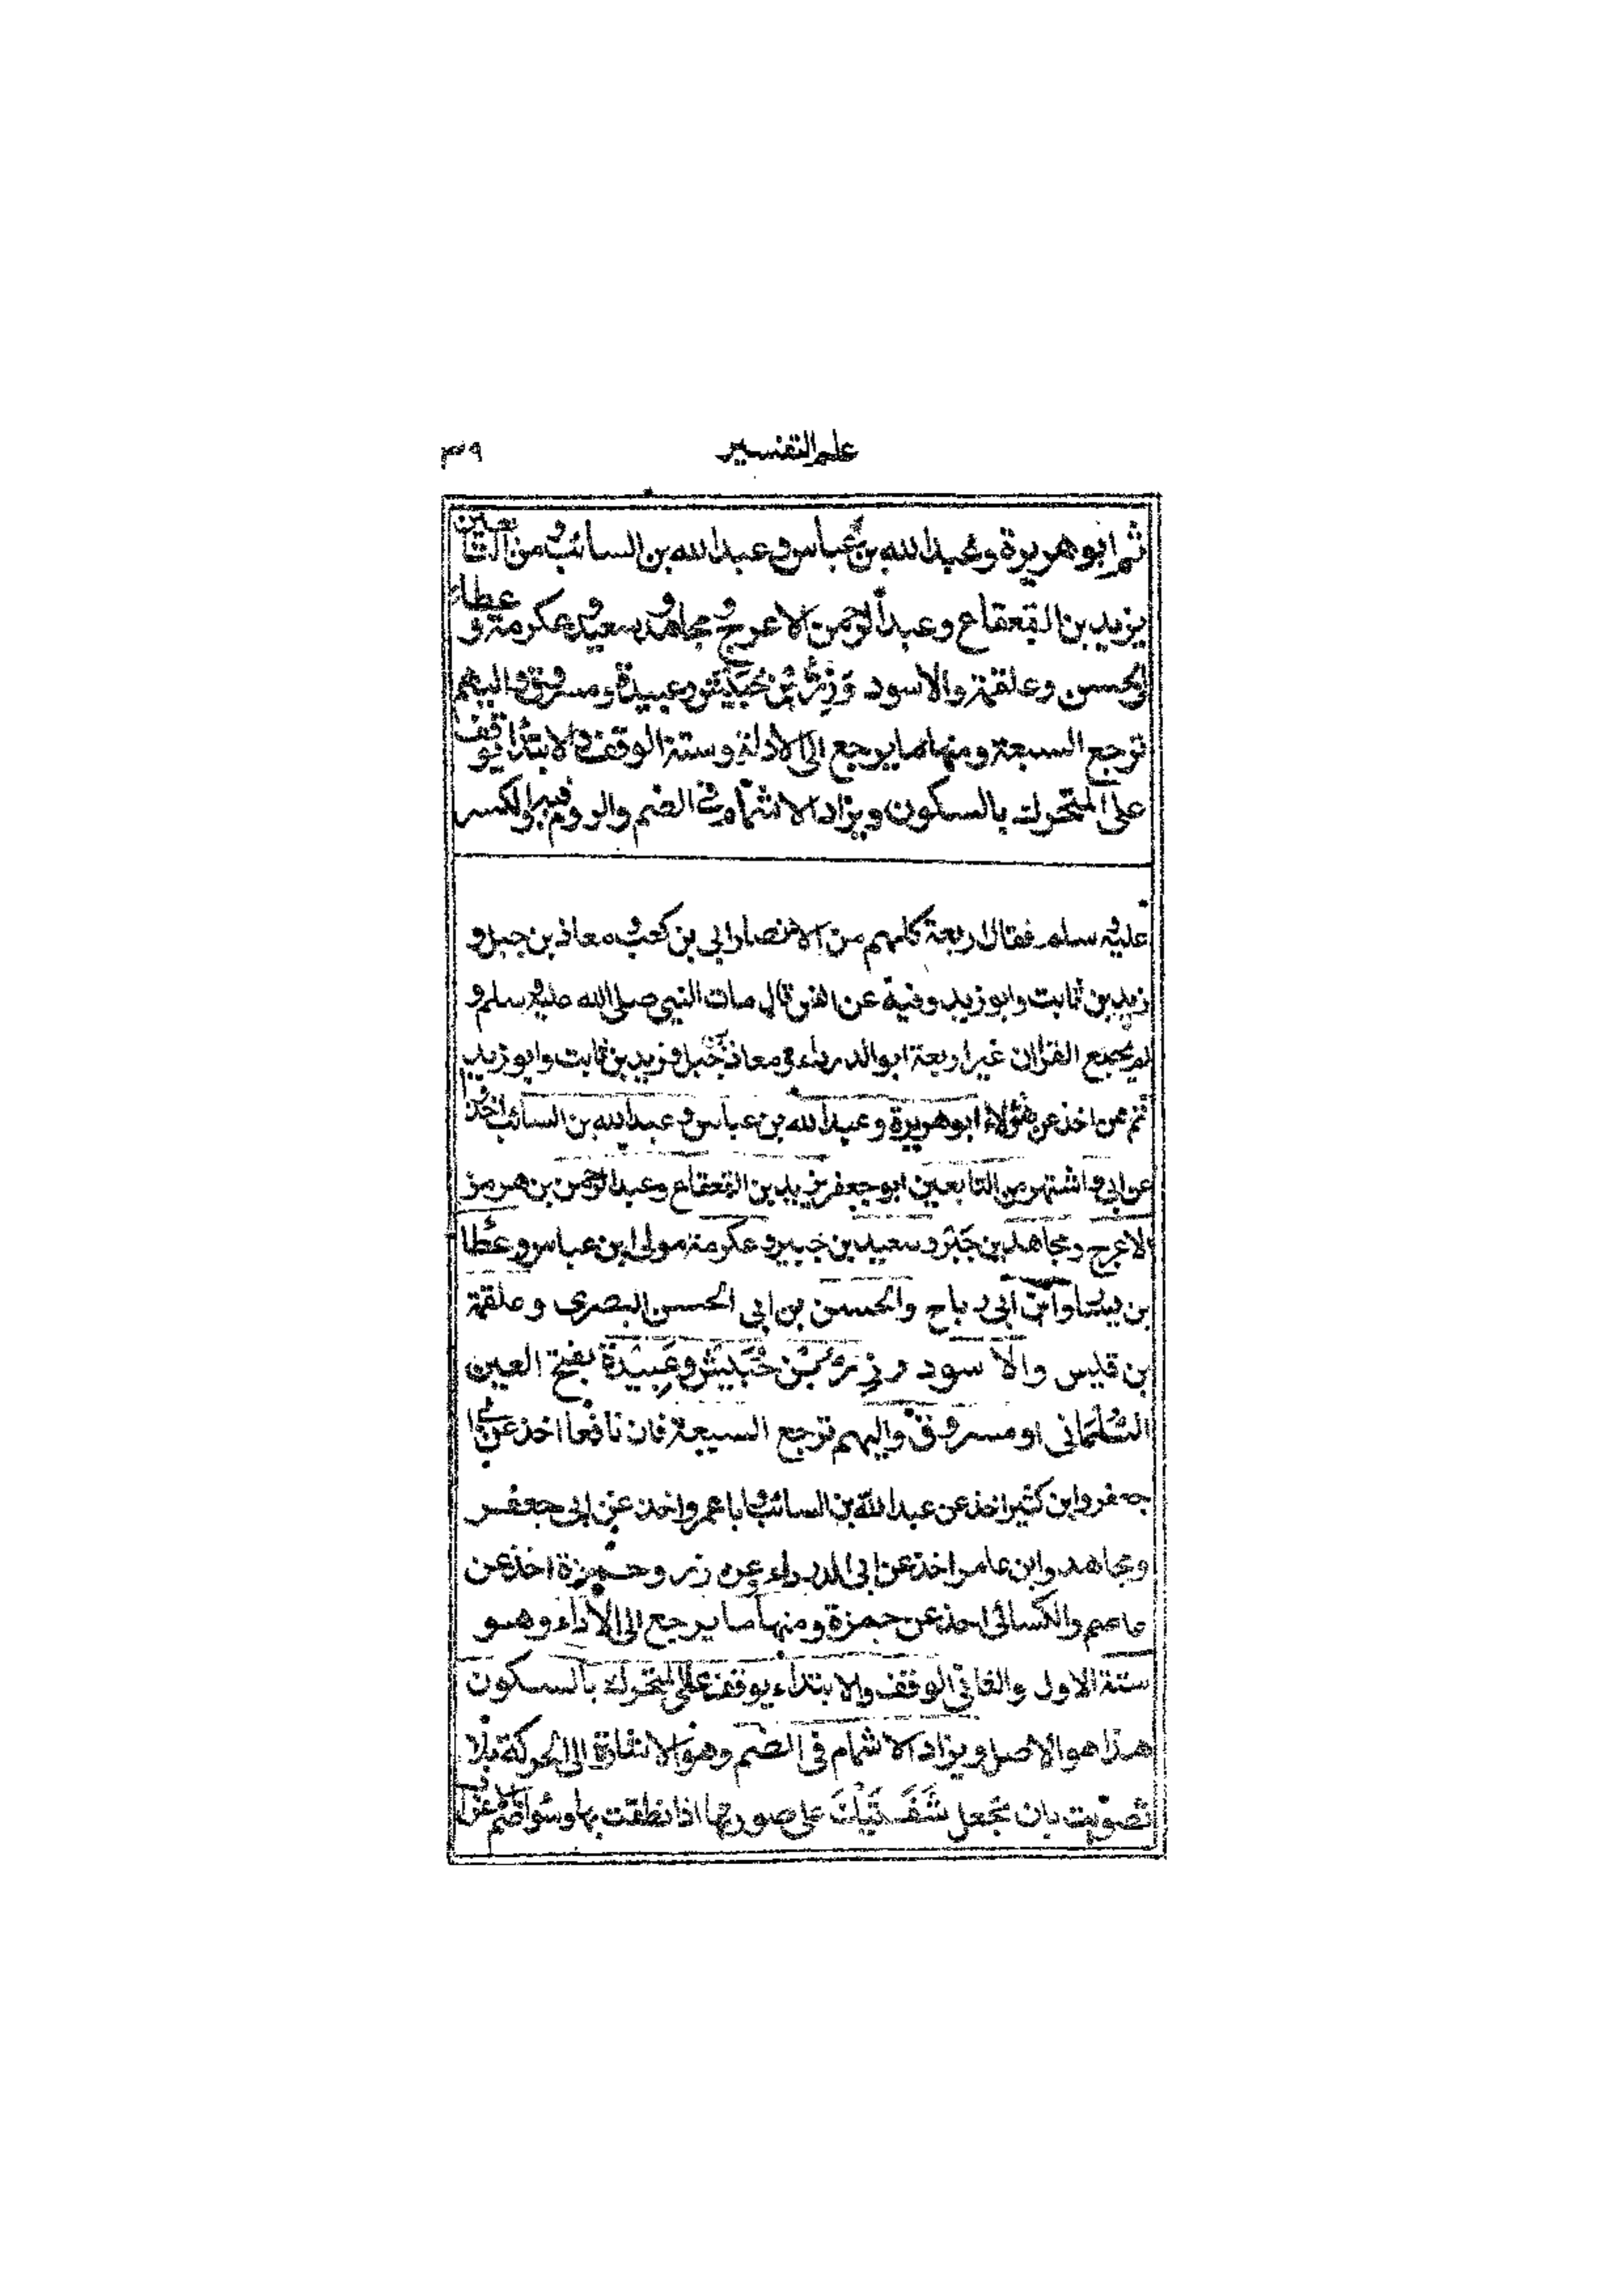 علم التفسير ٣٩
ثم ابو هريرة وعبد الله بن عباس وعبد الله بن السائب ومن التابعين
يزيد بن القعقاع وعبد الرحمن الاعرج ومجاهد وسعيد وعكرمة وعطاء
والحسن وعلقمة والاسود وَزِرُّ بْنُ حُبَيْش وعبيدة ومسروق واليهم
ترجع السبعة ومنها ما يرجع الى الاداء وستة الوقف والابتداء يوقف
على المتحرك بالسكون ويزاد الاشمام فى الضم والروم فيه والكسر
عليه وسلم فقال اربعة كلهم من الانصار ابي بن كعب ومعاذ بن جبل و
زيد بن ثابت وابو زيد وفيه عن انس قال مات النبي صلى الله عليه وسلم و
لم يجمع القران غير اربعة ابو الدرداء ومعاذ بن جبل وزيد بن ثابت وابو زيد
ثم من اخذ عن هؤلاء ابو هريرة وعبد الله بن عباس وعبد الله بن السائب اخذا
عن ابي واشتهر من التابعين ابو جعفر يزيد بن القعقاع وعبد الرحمن بن هرمز
الاعرج ومجاهد بن جَبْر وسعيد بن جبير وعكرمة مولى ابن عباس وعطا
بن يسار وابن ابي رباح والحسن بن ابي الحسن البصرى وعلقمة
بن قيس والاسود وزِر بْن حُبَيْش وعَبِيْدَة بفتح العين
السَّلْمَاني ومسروق واليهم ترجع السبعة فان نافعا اخذ عن ابي
جعفر وابن كثير اخذ عن عبد الله بن السائب وابا عمرو اخذ عن ابى جعفر
ومجاهد وابن عامر اخذ عن ابى الدرداء عن زر وحمزة اخذ عن
عاصم والكسائى اخذ عن حمزة ومنها ما يرجع الى الأداء وهو
ستة الاول والثانى الوقف والابتداء يوقف على المتحرك بالسكون
هذا هو الاصل ويزاد الاشمام فى الضم وهو الاشارة الى الحركة بلا
تصويت بان تجعل شَفَتَيْكَ على صورتها اذا نطقت بها وسواء ضم